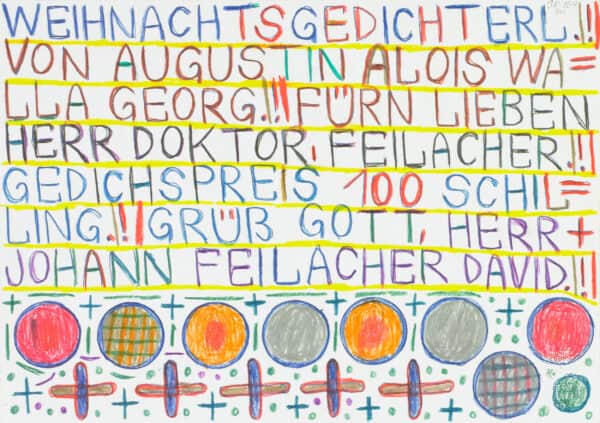 WEIHNACHTSGEDICHTERL.!!
VON AUGUSTIN ALOIS WA=
LLA GEORG.!!FÜRN LIEBEN
HERR DOKTOR, FEILACHER.!!
GEDICHSPREIS 100 SCHIL=
LING.!!GRÜß GOTT, HERR+
JOHANN FEILACHER DAVID.!!